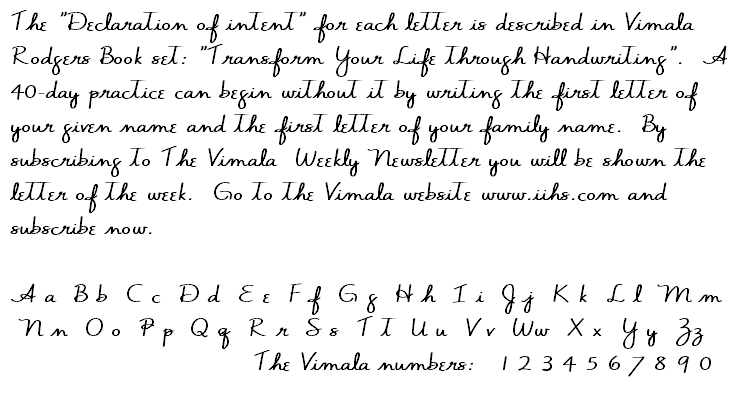 The "Declaration of intent" for each letter is described in Vimala
Rodgers Book set: "Transform Your Life Through Handwriting". A
40-day practice can begin without it by writing the first letter of
your given name and the first letter of your family name. By
subscribing to The Vimala Weekly Newsletter you will be shown the
letter of the week. Go to the Vimala website www.iihs.com and
subscribe now.
A a B b C c D d E e F f G g H h I i J j K k L l M m
N n O o P p Q q R r S s T t U u V v W w X x Y y Z z
The Vimala numbers: 1 2 3 4 5 6 7 8 9 0